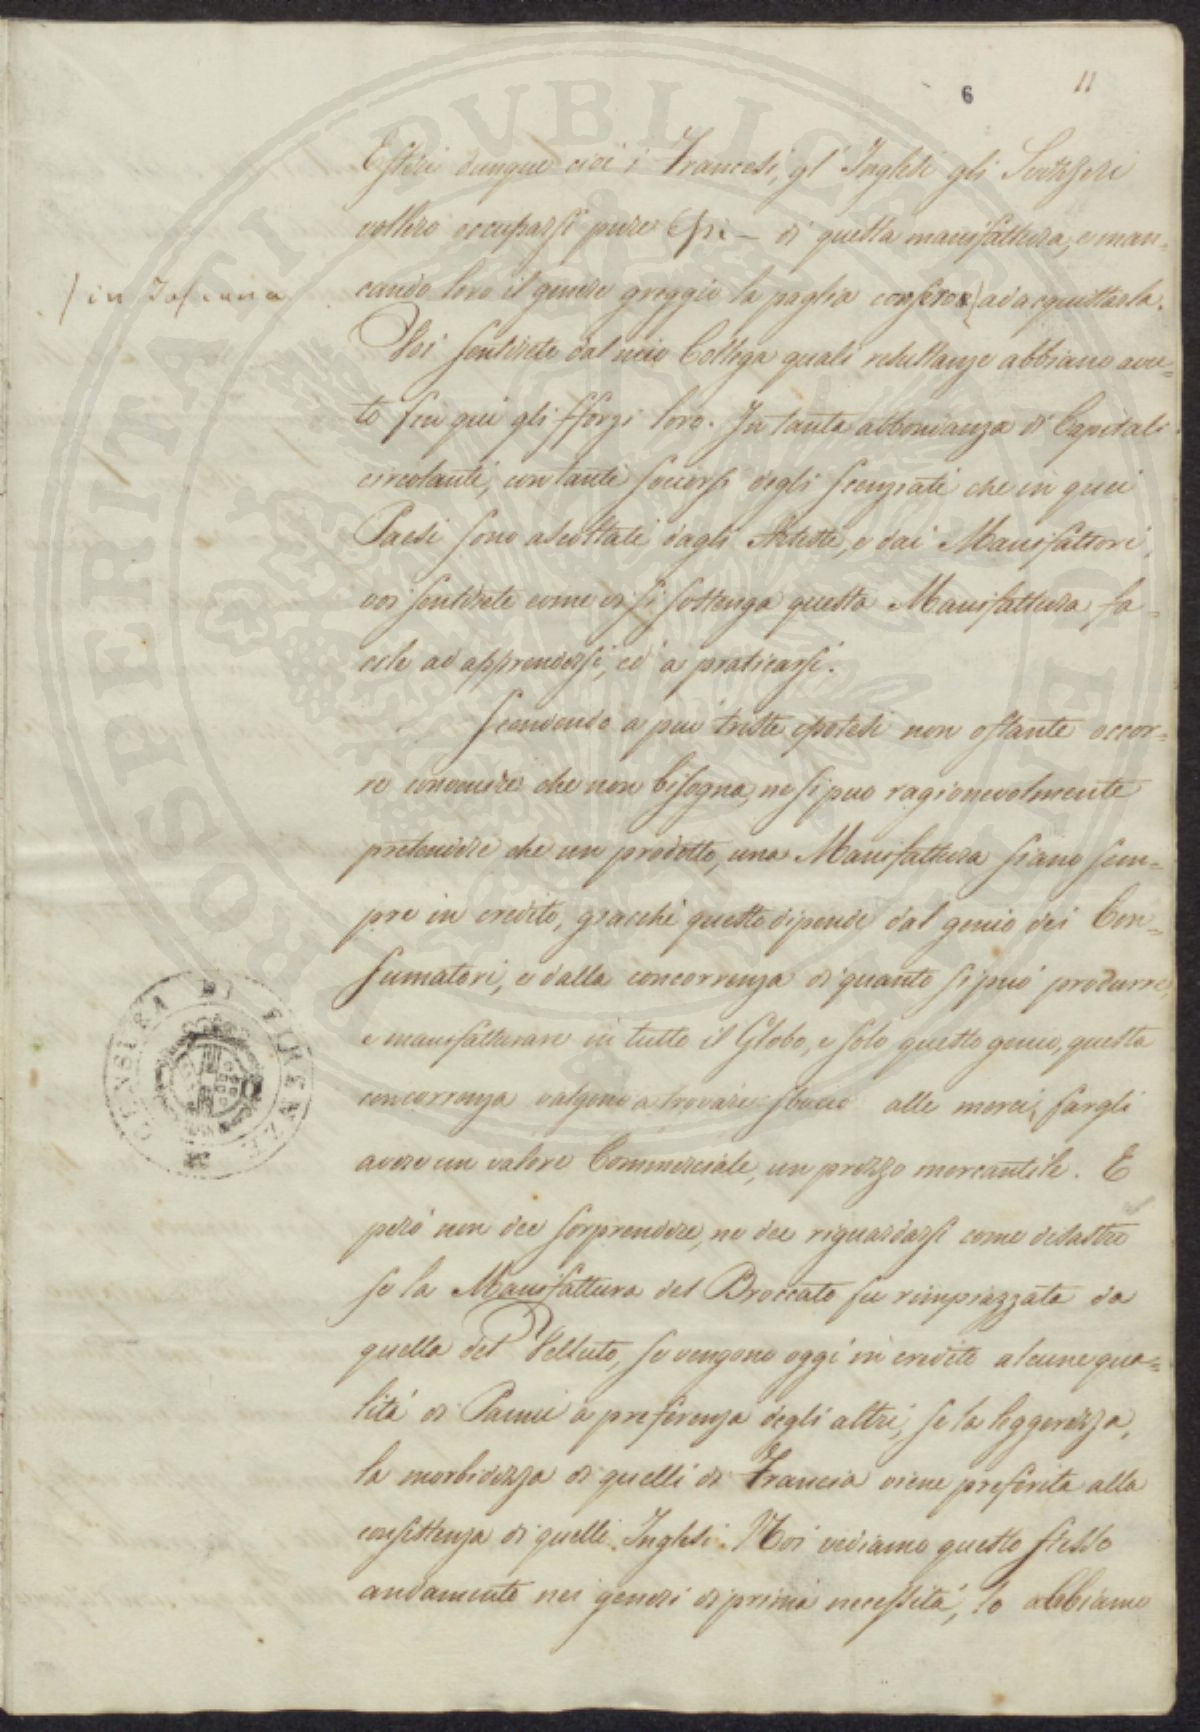 6
11
Esteri dunque cioè i Francesi, gl' Inglesi gli Svizzeri
vollero occuparsi pure Essi – di questa manifattura, e man=
cando loro il genere greggio la paglia corsero ad acquistarla.
/ in Toscana
Voi sentirete dal mio Collega quali resultanze abbiano avu=
to fin qui gli sforzi loro. In tanta abbondanza di Capitali
circolanti, con tanti soccorsi degli scenziati che in quei
Paesi sono ascoltati dagli Artisti, e dai Manifattori,
voi sentirete come si sostenga questa Manifattura fa=
cile ad apprendersi, ed a praticarsi.
Scendendo a più triste ipotesi non ostante occor=
re convenire che non bisogna, ne si può ragionevolmente
pretendere che un prodotto, una Manifattura siano sem=
pre in credito, giacché questo dipende dal genio dei Con=
sumatori, e dalla concorrenza di quanto si può produrre,
e manifatturare in tutto il Globo, e solo questo genio, questa
concorrenza valgono a trovare sbocco alle merci, fargli
avere un valore Commerciale, un prezzo mercantile. E
però non dee sorprendere, ne dee riguardarsi come disastro
se la Manifattura del Broccato fu rimpiazzata da
quella del Velluto, se vengono oggi in credito alcune qua=
lità di Panni a preferenza degli altri, se la leggerezza,
la morbidezza di quelli di Francia viene preferita alla
consistenza di quelli Inglesi. Noi vediamo questo stesso
andamento nei generi di prima necessità, lo abbiamo
CENSURA DI FIRENZE
PROSPERITATI PUBLICAE